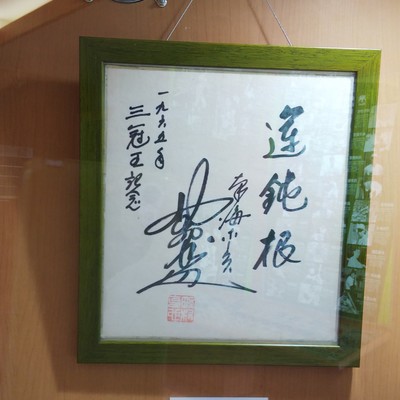 運鈍根
南海ホークス
一九六五年
三冠王記念